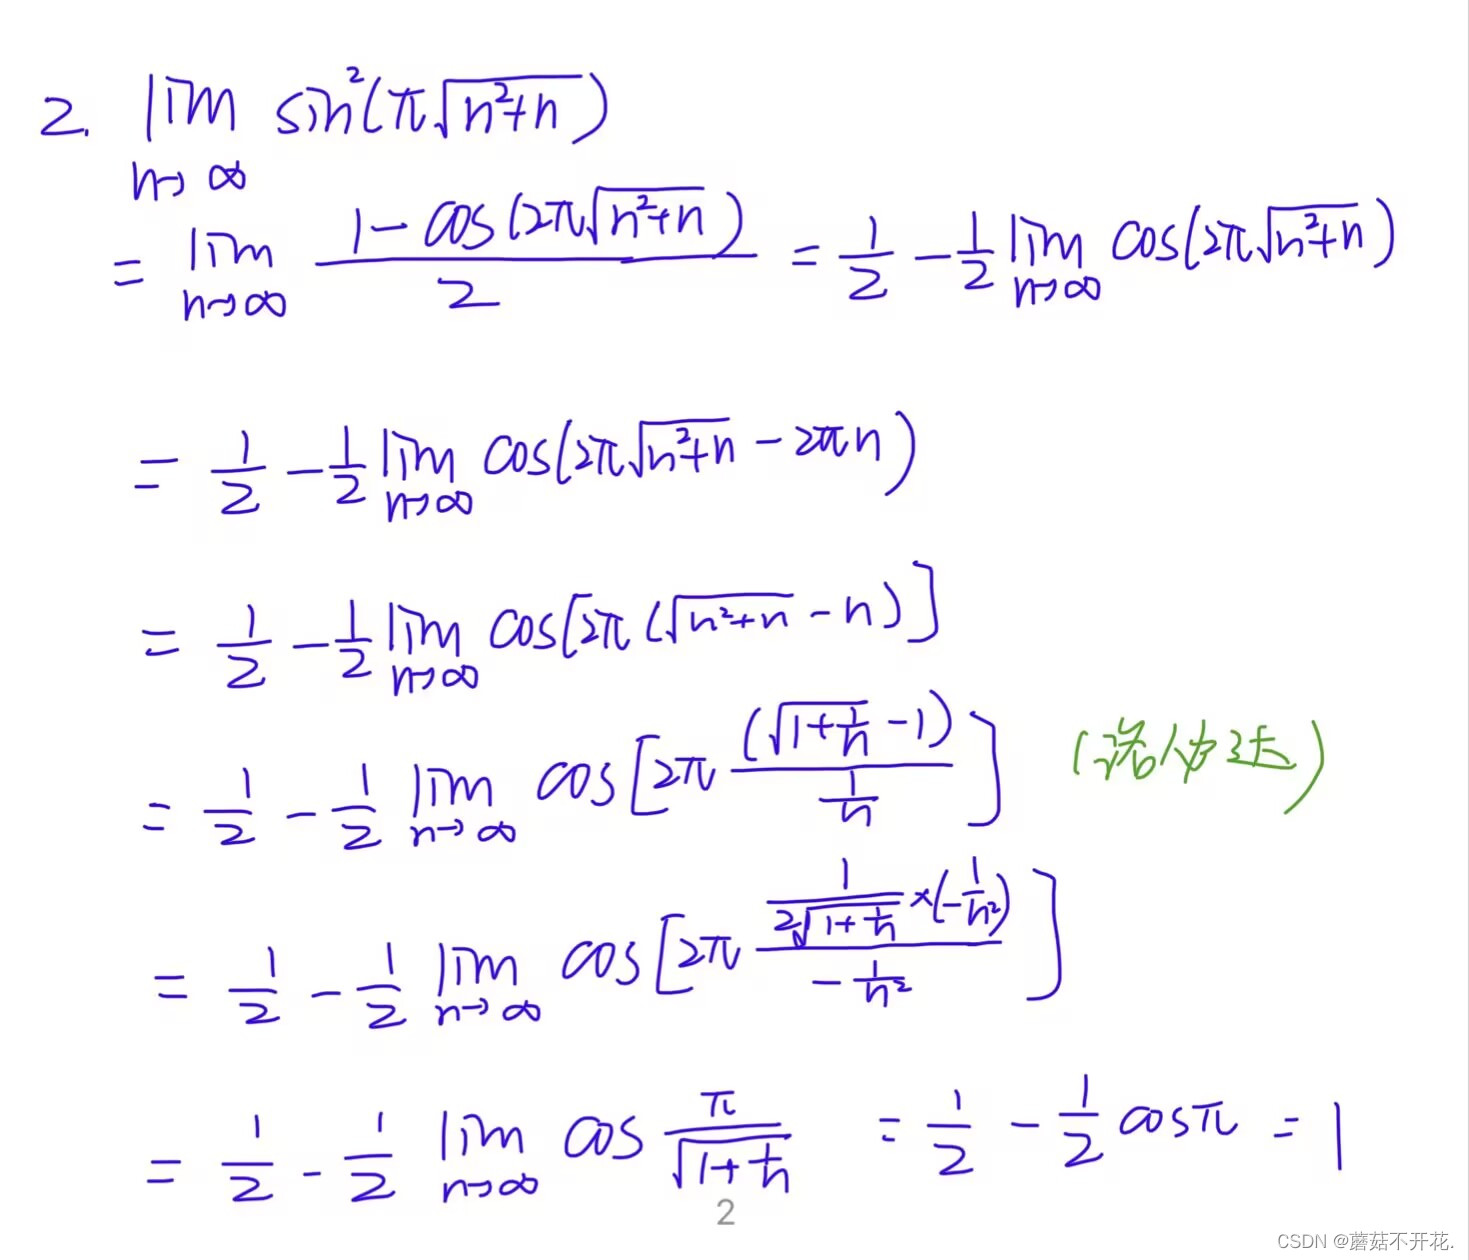 2. lim n→∞ sin²(π√(n²+n))
= lim n→∞ (1-cos(2π√(n²+n)))/2 = 1/2 - 1/2 lim n→∞ cos(2π√(n²+n))
= 1/2 - 1/2 lim n→∞ cos(2π√(n²+n) - 2πn)
= 1/2 - 1/2 lim n→∞ cos[2π(√(n²+n) - n)]
= 1/2 - 1/2 lim n→∞ cos[2π (√(1+1/n) - 1)/(1/n)] (洛必达)
= 1/2 - 1/2 lim n→∞ cos[2π (1/(2√(1+1/n)) × (-1/n²))/(-1/n²)]
= 1/2 - 1/2 lim n→∞ cos π/√(1+1/n) = 1/2 - 1/2 cosπ = 1
2
CSDN @蘑菇不开花.